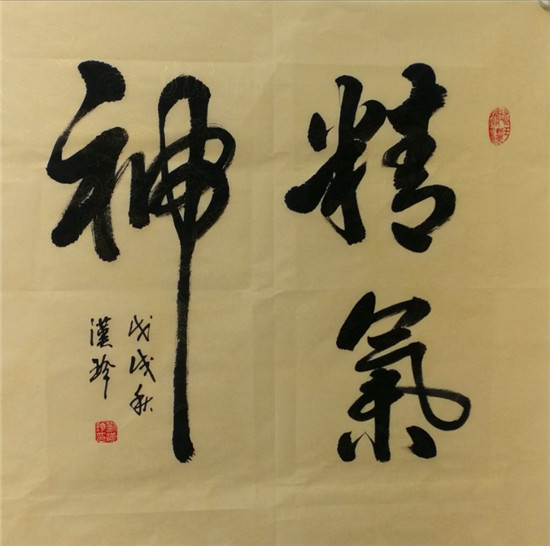 精氣
神
戊戌秋
漢珍